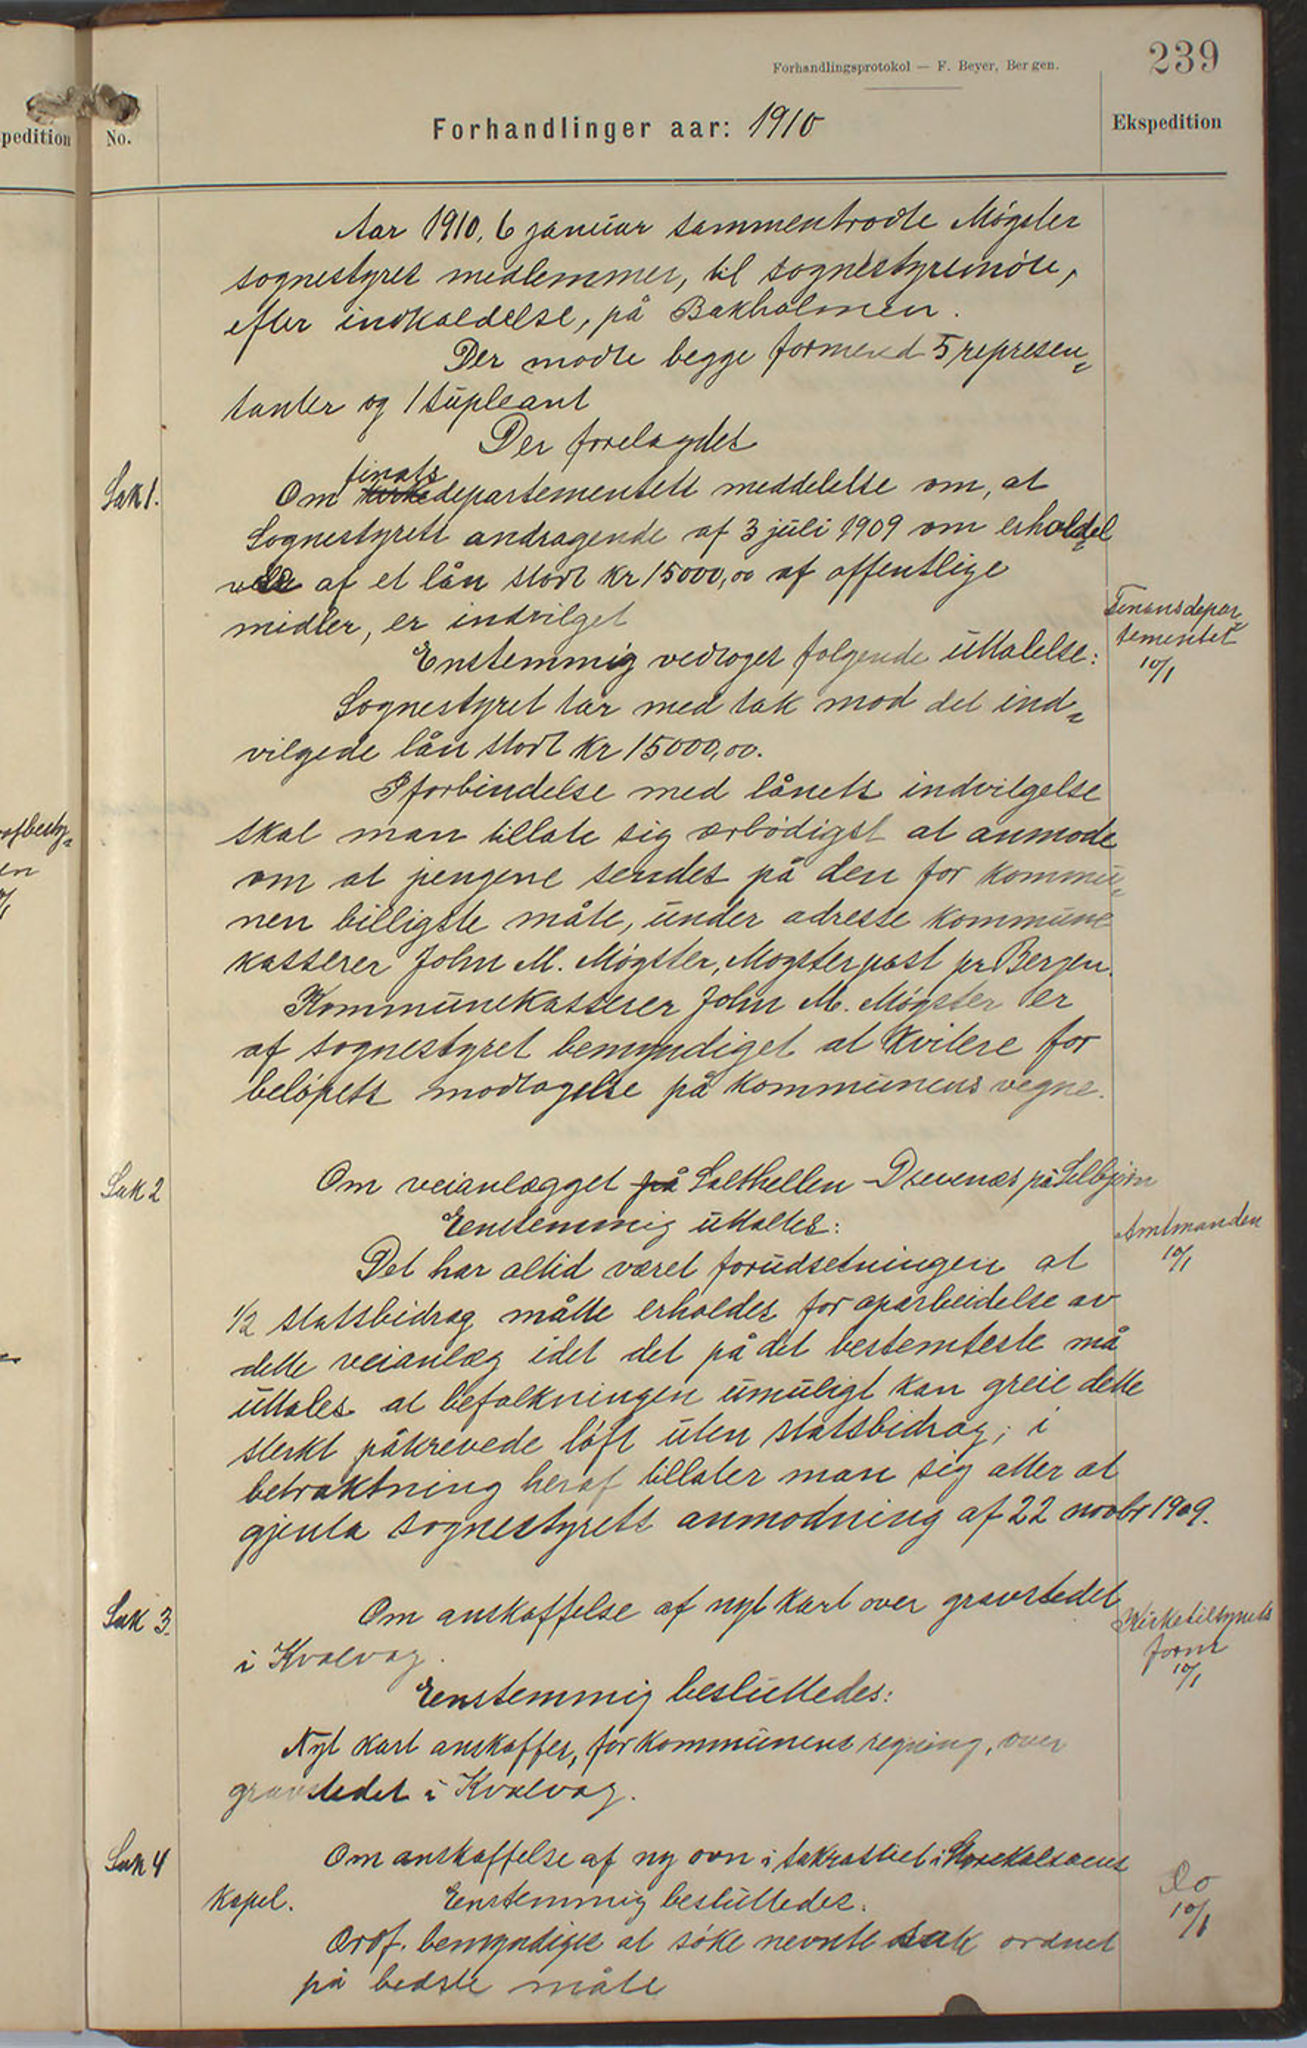 239
Forhandlingsprotokol — F. Beyer, Bergen.
pedition No. Forhandlinger aar: 1910 Ekspedition
Aar 1910, 6 januar sammentrodte Møgster
sognestyres medlemmer, til sognestyremöte,
efter indkaldelse, på Bakholmen.
Der modte begge formend 5 represen=
tanter og 1 supleant
Der forelagdes
Sak 1. Om finats kirkedepartementets meddelelse om, at
Sognestyrets andragende af 3 juli 1909 om erholdel=
se af et lån stort kr 15000,00 af offentlige
midler, er indvilget
Finansdepar=
tementet
10/1
Enstemmig vedtoges folgende uttalelse:
Sognestyret tar med tak mod det ind=
vilgede lån stort kr 15000,00.
I forbindelse med lånets indvilgelse
skal man tillate sig ærbödigst at anmode
om at pengene sendes på den for kommu=
nen billigste måte, under adresse kommune
kasserer John M. Møgster, Mogsterpost pr Bergen.
Kommunekasserer John M. Møgster er
af sognestyret bemyndiget at kvitere for
belöpets modtagelse på kommunens vegne.
Sak 2 Om veianlægget på Salthellen - Drevenæs på Selbjörn
Eenstemmig uttaltes:
Amtmanden
10/1
Det har altid været forudsetningen at
1/2 statsbidrag måtte erholdes for oparbeidelse av
dette veianlæg idet det på det bestemteste må
uttales at befolkningen umuligt kan greie dette
sterkt påkrevede löft uten statsbidrag; i
betraktning heraf tillater man sig atter at
gjenta sognestyrets anmodning af 22 novbr 1909.
Sak 3. Om anskaffelse af nyt kart over gravstedet
i Kvalvag.
Kirketilsynets
form
10/1
Eenstemmig besluttedes:
Nyt kart anskaffes, for kommunens regning, over
gravstedet i Kvalvag.
Sak 4 Om anskaffelse af ny ovn i sakrastiet i Storekalsoens
kapel. Eenstemmig besluttedes.
Do
10/1
Ordf. bemyndiges at söke nevnte sak ordnet
på bedste måte